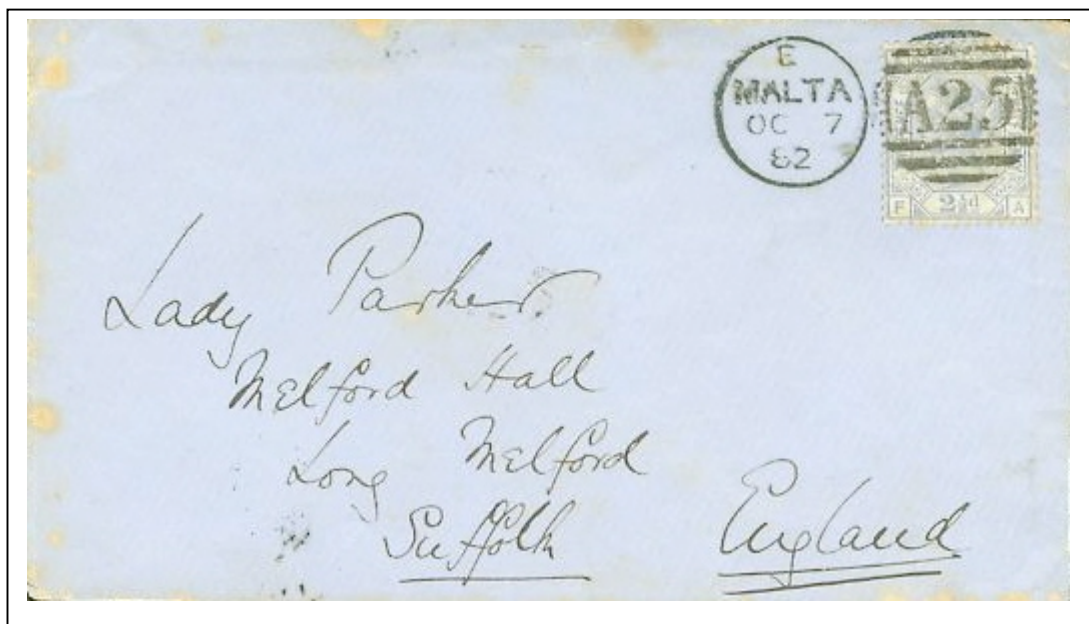 E
MALTA
OC 7
82
A25
F 2½d A
Lady Parker
Melford Hall
Long Melford
Suffolk England